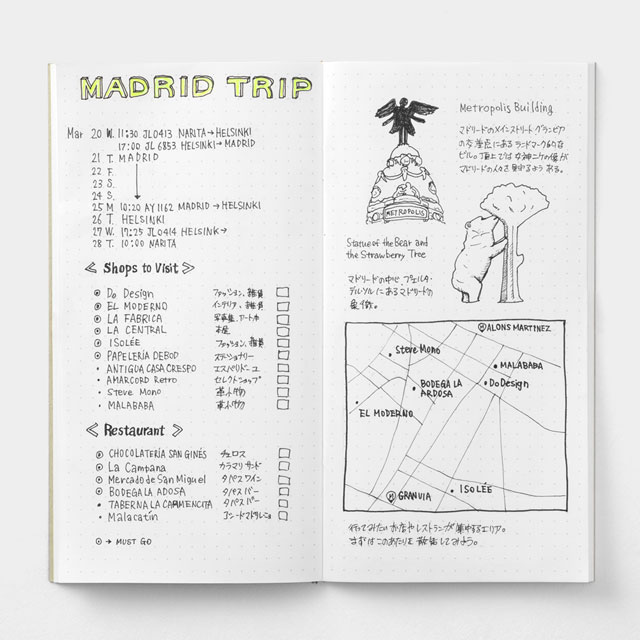 MADRID TRIP
Mar 20 W. 11:30 JL0413 NARITA→HELSINKI
17:00 JL6853 HELSINKI→MADRID
21 T. MADRID
22 F.
23 S.
24 S.
25 M 10:20 AY1162 MADRID→HELSINKI
26 T. HELSINKI
27 W. 17:25 JL0414 HELSINK→
28 T. 10:00 NARITA
≪ Shops to Visit ≫
⦿ Do Design ファッション、雑貨
⦿ EL MODERNO インテリア、雑貨
⦿ LA FABRICA 写真集、アート本
⦿ LA CENTRAL 本屋
⦿ ISOLÉE ファッション、雑貨
⦿ PAPELERÍA DEBOD ステーショナリー
• ANTIGUA CASA CRESPO エスパドリーユ
• AMARCORD Retro セレクトショップ
• Steve Mono 革小物
• MALABABA 革小物
≪ Restaurant ≫
⦿ CHOCOLATERÍA SAN GINÉS チュロス
⦿ La Campana カラマリサンド
⦿ Mercado de San Miguel タパス ワイン
⦿ BODEGA LA ADOSA タパス バー
• TABERNA LA CARMENCITA タパス バー
• Malacatín
⦿ → MUST GO
Metropolis Building
マドリードのメインストリート グランビア
の交差点にあるランドマーク的な
ビル。頂上では女神ニケの像が
マドリードの人々を見守るようある。
METROPOLIS
Statue of the Bear and
the Strawberry Tree
マドリードの中心、プエルタ・
デル・ソルにあるマドリードの
象徴。
ALONS MARTINEZ
Steve Mono
MALABABA
BODEGA LA
ARDOSA
Do Design
EL MODERNO
ISOLÉE
GRANVIA
行ってみたいお店やレストランが集中するエリア。
まずはこのあたりを散策してみよう。